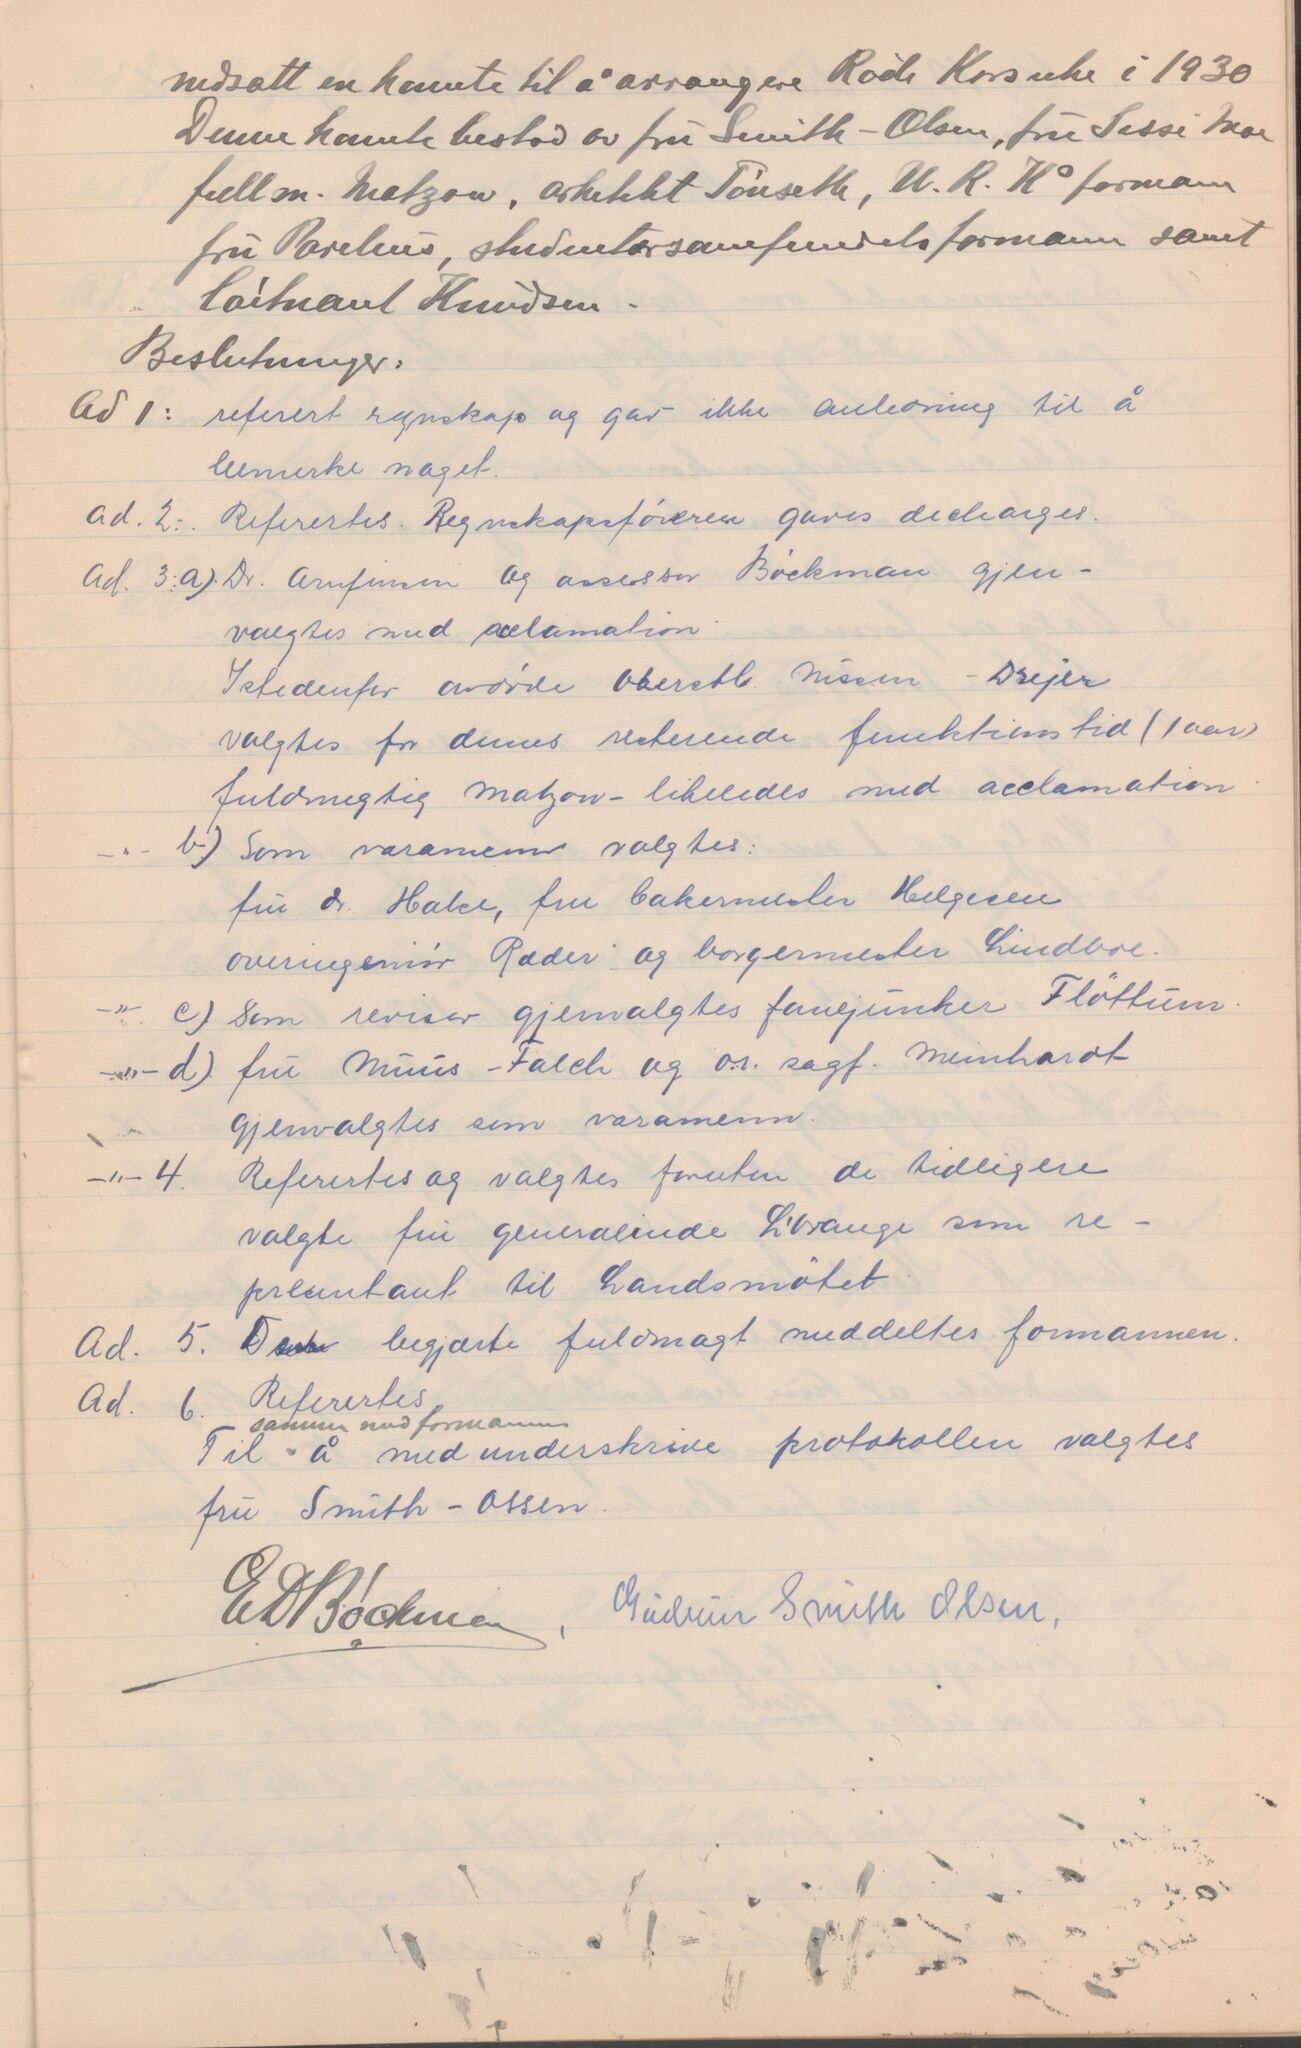 nedsatt en komite til å arrangere Röde Korsuke i 1930
Denne komite bestod av frü Smith-Olsen, frü Sissi Moe
fullm. Matzow, arkitekt Tönseth, U. R. K° formann
frü Parelius, studentersamfundets formann samt
löitnant Knudsen.
Beslutninger:
Ad 1: referert regnskap og gav ikke anledning til å
bemerke noget.
Ad. 2:. Referertes. Regnskapsföreren gaves decharges.
Ad. 3:a) Dr. Arnfinsen og assessor Böckman gjen-
valgtes med acclamation
Istedenfor avdöde Oberstl. Nissen-Drejer
valgtes for dennes resterende funktionstid (1 aar)
fuldmegtig Matzow- likeledes med acclamation
-"- b) Som varamenn valgtes:
frü dr. Hake, frü bakermester Helgesen
overingeniör Ræder og borgermester Lindboe.
-"- c) Som revisor gjenvalgtes fanejunker Flöttum.
-"- d) frü Müüs-Falch og o.r. sagf. Meinhardt
gjenvalgtes som varamenn.
-"- 4. Referertes og valgtes foruten de tidligere
valgte frü generalinde L'orange som re-
presentant til Landsmötet
Ad. 5. Den begjærte fuldmagt meddeltes formannen.
Ad. 6. Referertes
sammen med formannen
Til å medunderskrive protokollen valgtes
frü Smith-Olsen.
E D Böckman, Gudrün Smith Olsen,